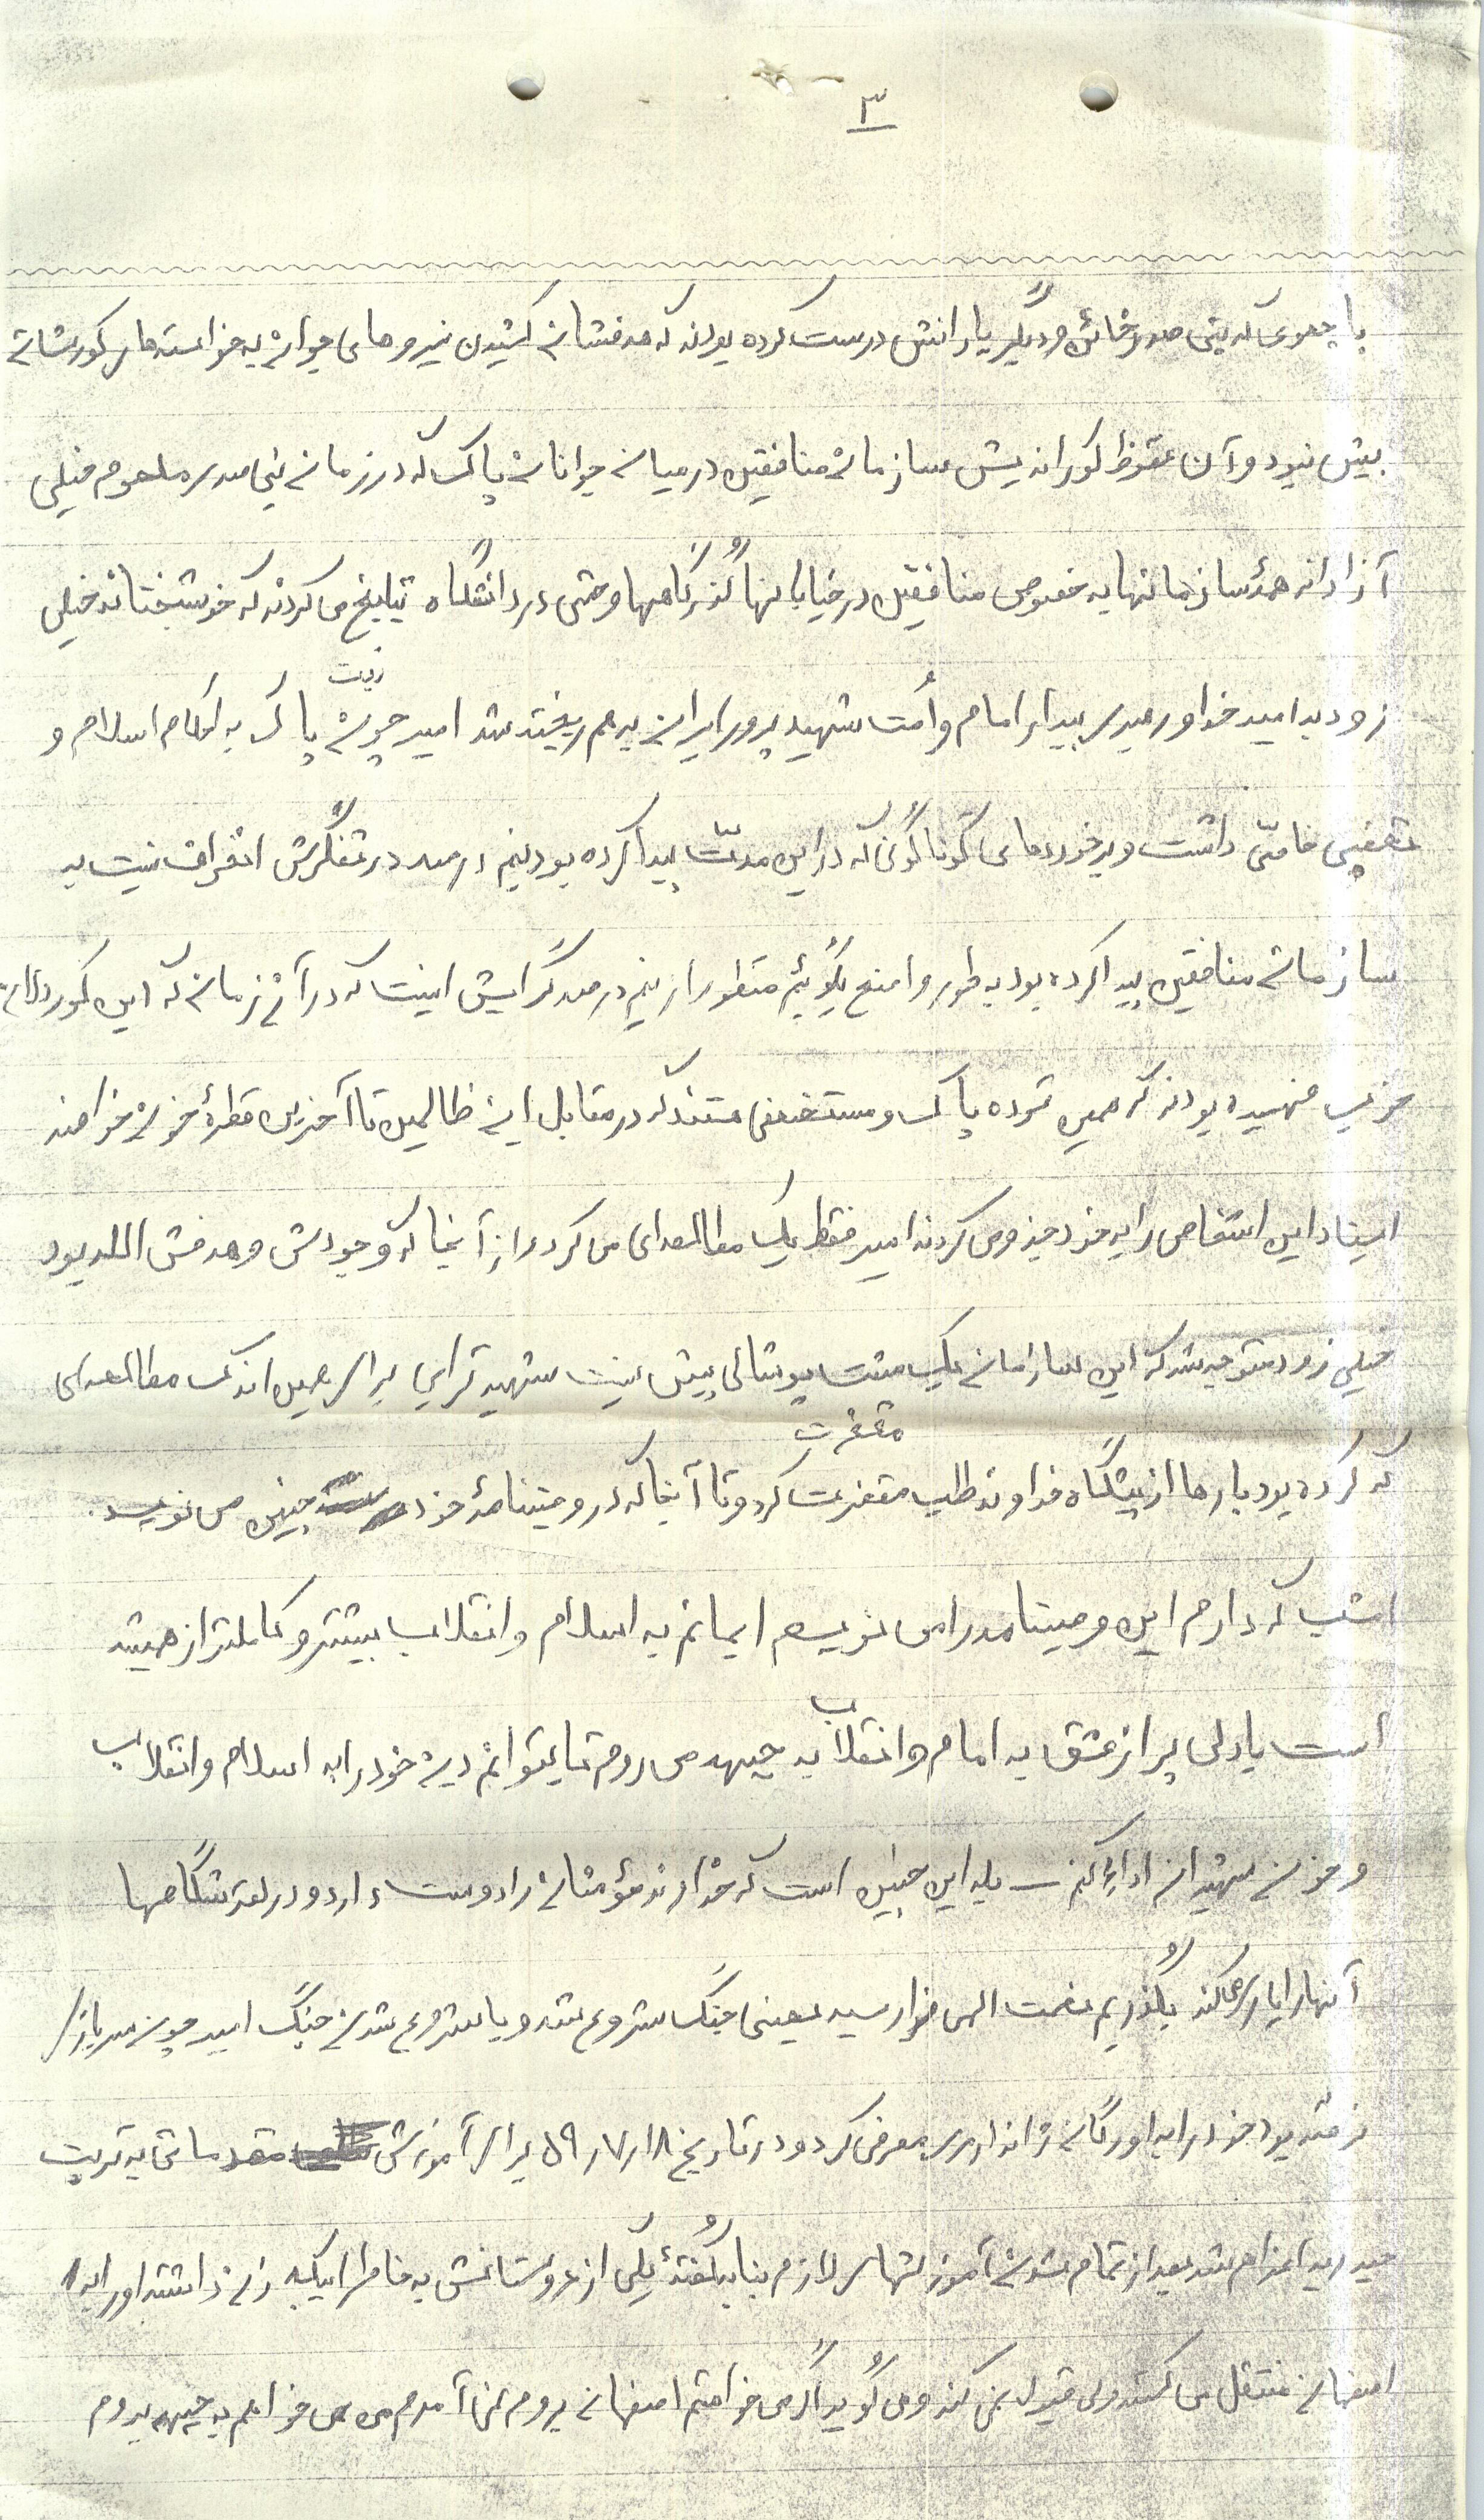 ۳
با جوی که بنی صدر خائن و دیگر یارانش درست کرده بودند که هدفشان کشیدن نیروهای جوان به خواسته های کورشان
بیش نبود و آن نفوذ کورانه یش سازمان منافقین در میان جوانان پاک که در زمان بنی صدر ملعوم خیلی
آزادانه همهٔ سازمانها به خصوص منافقین در خیابانها گذرگاهها و حتی در دانشگاه تبلیغ می کردند که خوشبختانه خیلی
زود به امید خدا و رهبری بیدار امام و اُمت شهید پرور ایران به هم ریخته شد امیر چون نیت پاک به احکام اسلام و
تعصبی خاصّی داشت و برخوردهای گوناگونی که در این مدّت پیدا کرده بودنیم درصد در تفگرش انحراف نیت به
سازمان منافقین پیدا کرده بود به طور واضح بگوئیم منظور از نیم درصد گرایش اینست که در آن زمان که این کوردلان
خوب فهمیده بودند که همین توده پاک و مستضعفی هستند که در مقابل این ظالمین تا آخرین قطرهٔ خون خواهند
ایستاد این اشخاص را به خود جذب می کردند امیر فقط یک مطالعه ای می کرد و از آنجا که وجودش و هدفش الله بود
خیلی زود متوجه شد که این سازمان یک مشت پوشالی بیش نیست شهید ترابی برای همین اندک مطالعه ای
که کرده بود بارها از پیشگاه خداوند طلب مغفرت کرد و تا آنجا که در وصیتنامهٔ خود چنین می نویسد:
امشب که دارم این وصیتنامه را می نویسم ایمانم به اسلام و انقلاب بیشتر و کاملتر از همیشه
است با دلی پر از عشق به امام و انقلاب به جبهه می روم تا بتوانم دین خود را به اسلام و انقلاب
و خون شهیدان اداء کنم — بله این چنین است که خداوند مؤمنان را دوست دارد و در لغزشگاهها
آنها را یاری می کند بگذریم نعمت الهی فرا رسید یعنی جنگ شروع شد و با شروع شدن جنگ امیر چون سربازی
نرفته بود خود را به اورگان ژاندارمری معرفی کرد و در تاریخ ۱۸ر۷ر۵۹ برای آموزش مقدماتی به تربت
حیدریه اعزام شد بعد از تمام شدن آموزشهای لازم بنا بگفتهٔ یکی از دوستانش به خاطر اینکه زن داشته او را به
اصفهان منتقل می کنند ولی قبول نمی کند و می گوید اگر می خواستم اصفهان بروم نمی آمدم من می خواهم به جبهه بروم